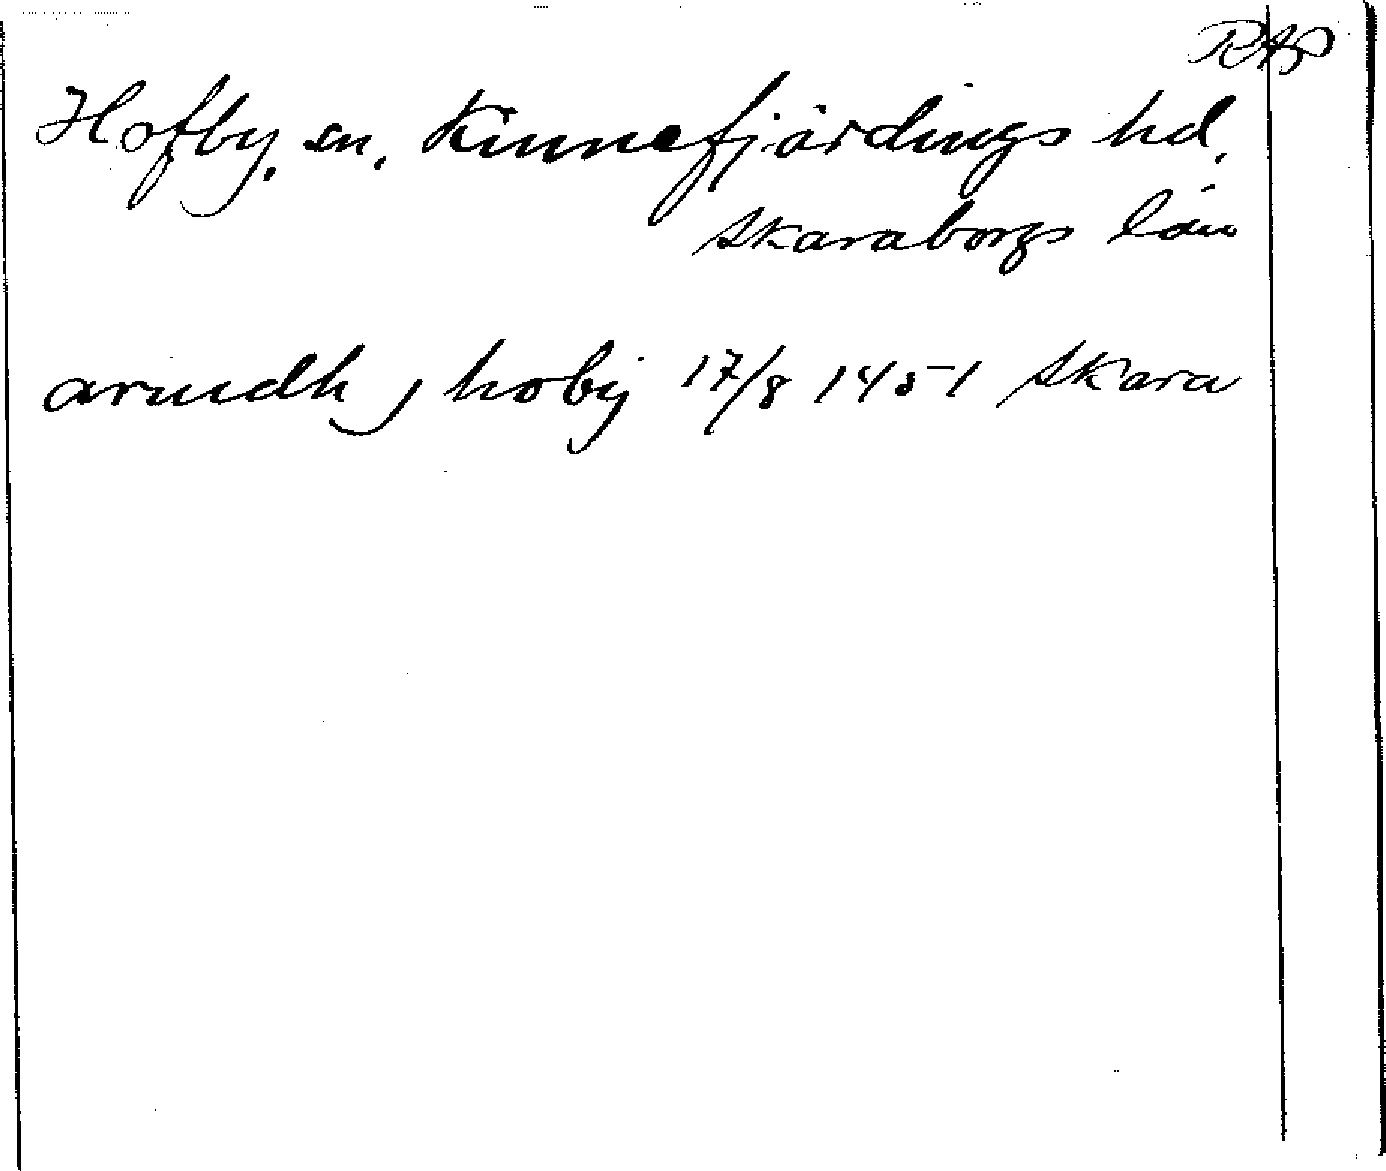 RAP
Hofby, sn, Kinnefjärdings hd,
Skaraborgs län
aruidh j hobij 17/8 1451 Skara